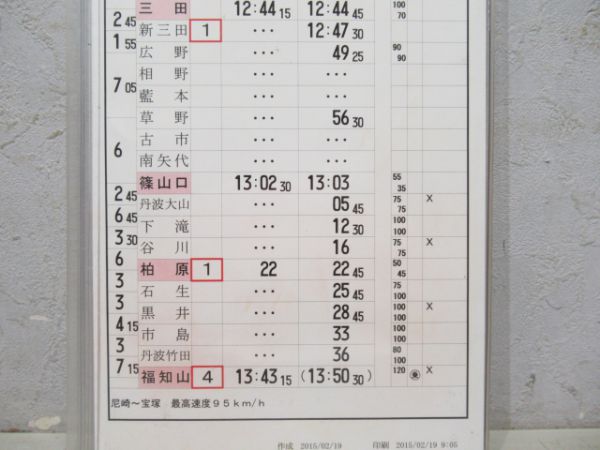 三 田 12:44 15 12:44 45 100 70
2 45
新三田 1 ・・・ 12:47 30
1 55
広 野 ・・・ 49 25 90 90
相 野 ・・・ ・・・
7 05
藍 本 ・・・ ・・・
草 野 ・・・ 56 30
古 市 ・・・ ・・・
6
南矢代 ・・・ ・・・
篠山口 13:02 30 13:03 55 35
2 45
丹波大山 ・・・ 05 45 75 75 X
6 45
下 滝 ・・・ 12 30 100
3 30
谷 川 ・・・ 16 75 75 X
6
柏 原 1 22 22 45 50 45
3
石 生 ・・・ 25 45 75 100
3
黒 井 ・・・ 28 45 100 100 X
4 15
市 島 ・・・ 33 100 100
3
丹波竹田 ・・・ 36 80 100
7 15
福知山 4 13:43 15 (13:50 30) 120 X
尼崎～宝塚 最高速度95km/h
作成 2015/02/19 印刷 2015/02/19 9:05